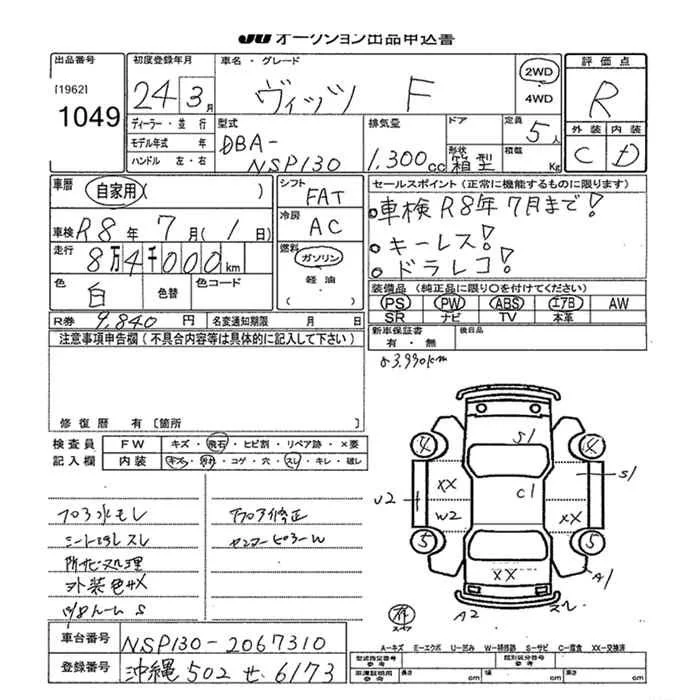 JU オークション出品申込書
出品番号
[1962]
1049
初度登録年月
24 3月
車名・グレード
ヴィッツ F
2WD
4WD
評価点
R
外装 内装
C D
ディーラー・並行
モデル年式 年
ハンドル 左・右
型式
DBA-
NSP130
排気量
1,300cc
ドア
形状
箱型
定員
5人
積載
Kg
車歴
自家用( )
シフト
FAT
セールスポイント(正常に機能するものに限ります)
車検R8年7月まで!
キーレス!
ドラレコ!
車検 R8年 7月(1日)
冷房
AC
走行
8万4千000km
燃料
ガソリン
軽油
( )
色
白
色替
色コード
装備品(純正品に限り○を付けてください)
PS PW ABS エアB AW
SR ナビ TV 本革
R券 9,840円
名変通知期限 月 日
新車保証書
有・無
後日品
83,990km
注意事項申告欄(不具合内容等は具体的に記入して下さい)
修復歴 有〔箇所 〕
検査員
記入欄
FW キズ・飛石・ヒビ割・リペア跡・×要
内装 キズ・汚れ・コゲ・穴・スレ・キレ・破レ
フロア修正
センターピラーW
シート汚れ スレ
外装色サメ
4 S1 4
XX S1
C1
U2
W2 XX
5 5
XX
A1
A2 スレ
A-キズ E-エクボ U-凹み W-補修跡 S-サビ C-腐食 XX-交換済
車台番号 NSP130-2067310
登録番号 沖縄502 せ 6173
型式指定番号
参考
類別区分番号
参考
車庫証明用
参考
長さ cm 幅 cm 高さ cm